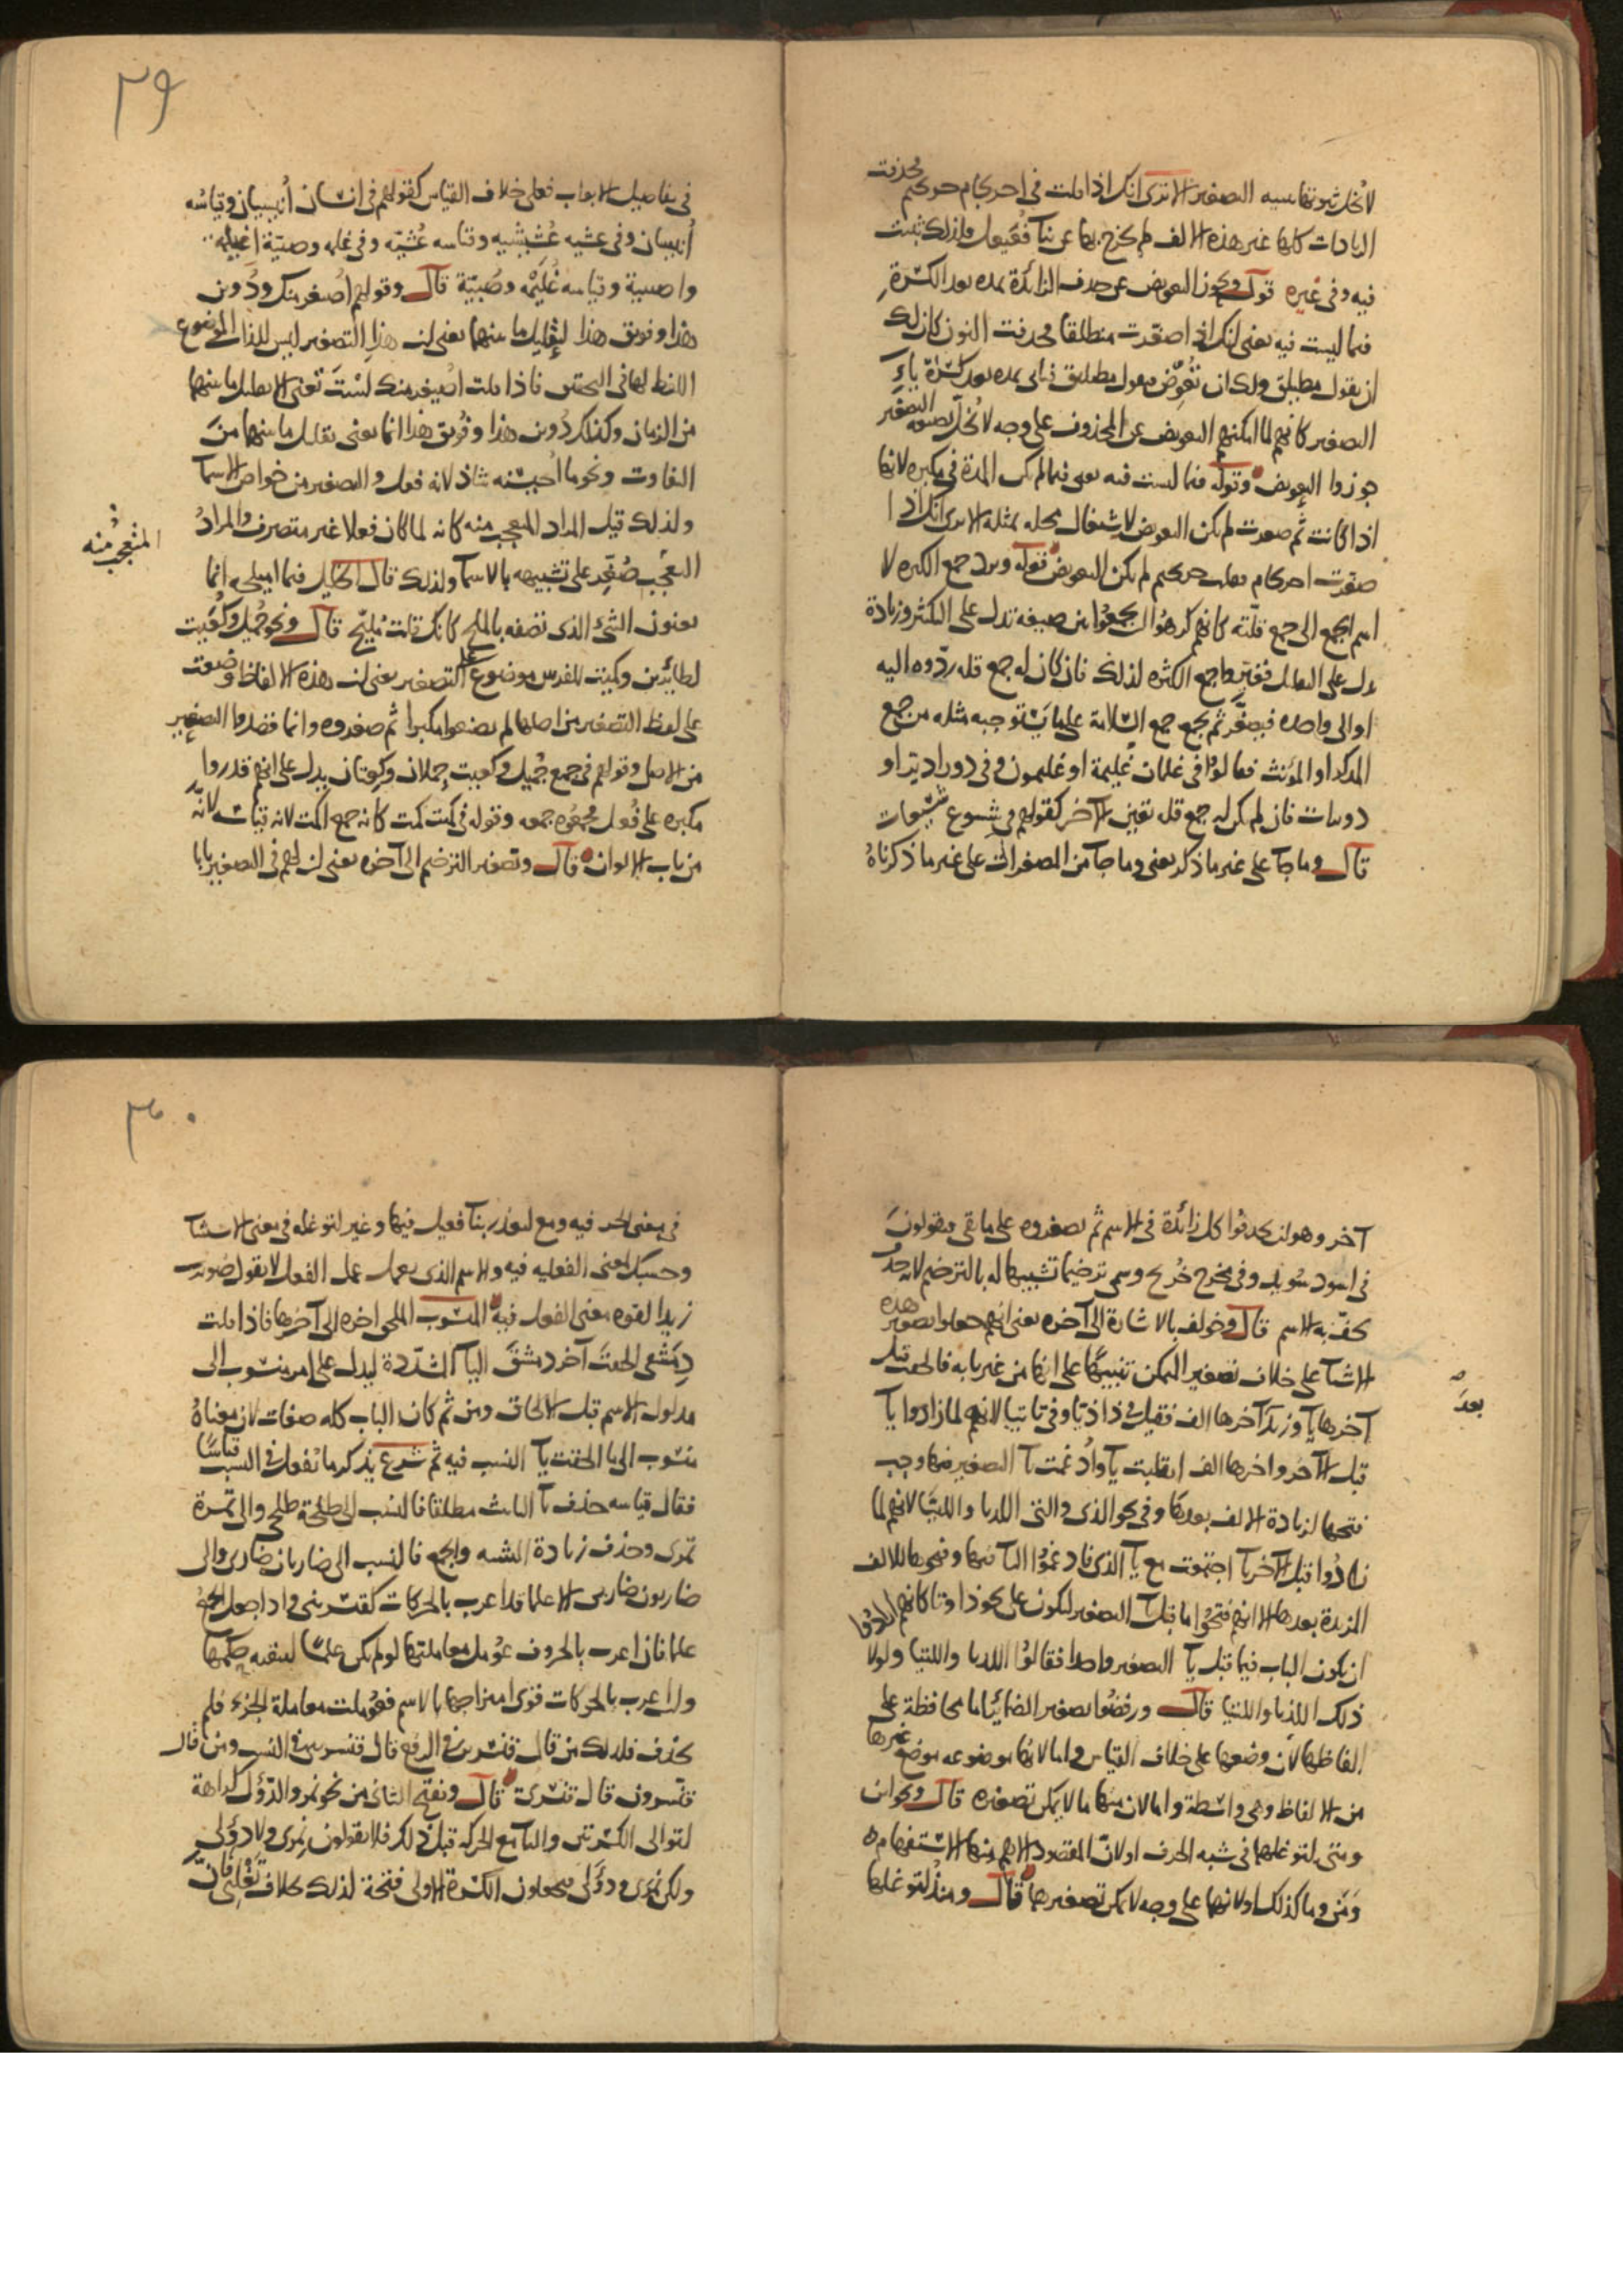 لا تخل ثبوتها ببنية التصغير الا ترى انك اذا قلت في احرنجام حريجيم فحذفت
الزيادات كلها غير هذه الالف لم يخرج بها عن بناء فُعَيعيل فلذلك ثبتت
فيه وفي غيره قوله ويجوز التعويض عن حذف الزائدة بمده بعد الكسرة
فيما ليست فيه يعني انك اذا صغّرت منطلقا فحذفت النون كان لك
ان يقول مطيلق ولك ان تُعَوِّض فيقول مطيليق فتاتي بمده بعد كسرة ياء
التصغير كانهم لما امكنهم التعويض عن المحذوف على وجه لا تُخلّ بصيغه التصغير
جوزوا التعويض وقوله فيما ليست فيه يعني فيما لم تكن المدة في مكبره لانها
اذا كانت ثم صغرت لم يكن التعويض لاشتغال محله بمثله الا ترى انك اذا
صغّرت احرنجام فقلت حريجيم لم يمكن التعويض قوله ويرد جمع الكثره لا
اسم الجمع الى جمع قلّته كانهم كرهوا ان يجمعوا بين صيغه تدل على التكثر وزيادة
تدل على التقليل فغيروا جمع الكثره لذلك فان كان له جمع قله ردّوه اليه
او الى واحده فيصغّر ثم يجمع جمع السّلامة على ما يستوجبه مثله من جمع
المذكر او المؤنث فقالوا في غلمان غُليمة او غليمون وفي دور اديئر او
دويرات فان لم يكن له جمع قله تعين الآخر كقولهم في شسوع شُسَيعات
قال وما جآ على غير ما ذكر يعني وما جآ من المصغرات على غير ما ذكرناه
٢٩
في تفاصيل الابواب فعلى خلاف القياس كقولهم في انسان أُنيسيان وقياسُه
أُنيسان وفي عشيه عُشَيشيه وقياسه عُشيّه وفي غلمه وصبيّة اغيلمه
واصيبية وقياسه غُلَيْمَه وصُبيّة قال وقولهم أُصيغر منك ودُوين
هذا وفويق هذا لتقليل ما بينهما يعني ان هذا التصغير ليس للذات الموضوع
اللفظ لها في التحقيق فاذا قلت أُصيغر منك لسْتَ تعني الا تقليل ما بينهما
من الزمان وكذلك دُوين هذا وفُويق هذا انما يعني تقليل ما بينهما من
التفاوت ونحو ما أُحيسنه شاذ لانه فعل والتصغير من خواص الاسمآ
ولذلك قيل المراد المتعجب منه كانه لما كان فعلا غير متصرف والمرادُ
المتعجَّب منه
التعجّب صُغِّر على تشبيهه بالاسمآ ولذلك قال الخليل فيما اميلحه انما
يعنون الشئ الذى تصفه بالملح كانك قلت مُليّح قال ونحو جُميل وكُعَيت
لطائرين وكُميت للفرس موضوع على التصغير يعني ان هذه الالفاظ وُضعت
على لفظ التصغير من اصلها لم يضعوا مكبرا ثم صغروه وانما قصدوا التصغير
من الاصل وقولهم في جمع جُميل وكعيت جِملان وكِعتان يدل على انهم قدروا
مكبره على فُعل فجمعُوه جمعه وقوله في كميت كمت كانه جمع اكمت لانه قياسه لانّه
من باب الالوان قال وتصغير الترخيم الى آخره يعني ان لهم في التصغير بابا
آخر وهو ان يحذفوا كل زائدة في الاسم ثم يصغروه على ما بقي فيقولون
في اسود سُويد وفي مخرج خُريج وسمى ترخيما تشبيها له بالترخيم لانه حذفٌ
يخفّ به الاسم قال وخولف بالاشارة الى آخره يعني انهم جعلوا تصغير هذه
الاشيآ على خلاف تصغير المتمكن تنبيهًا على انها من غير بابه فالحقت قبل
آخرها يآ وزيدَ آخرها الف فقيل في ذا ذيّا وفي تا تيّا لانهم لما زادوا يآ
بعدَ
قبل الآخر واخرها الف انقلبت يآ واُدغمت يآ التصغير فيها وجب
فتحها لزيادة الالف بعدها وفي نحو الذى والتى اللذيا واللتيا لانهم لما
زادُوا قبل الآخر يآ اجتمعت مع يآ الذى فادغمُوا اليآ فيها وفتحوها للالف
المزيدة بعدها الا انهم فتحُوا ما قبل يآ التصغير ليكون على نحو ذا وتا كانهم ارادُوا
ان يكون الباب فيما قبل يآ التصغير واحدا فقالُوا اللذيا واللتيا ولولا
ذلك اللُذيا واللتيا قال ورفضُوا تصغير الضمائر اما محافظة على
الفاظها لان وضعها على خلاف القياس واما لانها موضوعه موضع غيرها
من الالفاظ وهي واسطة واما لان منها ما لا يمكن تصغيره قال ونحو اين
ومتى لتوغلهما في شبه الحرف او لانّ المقصود الاهم منها الاستفهام
وَمَن وما كذلك او لانهما على وجه لا يمكن تصغيرهما قال ومنذُ لتوغلها
٣٠
في معنى الحرف فيه ومع لتعذر بنآ فعيل فيها وغير لتوغله في معنى الاستثنآ
وحسبك لمعنى الفعليه فيه والاسم الذى يعمل عمل الفعل لا يقول ضُويرب
زيدا لقوه معنى الفعل فيه المنسُوب الملحق اخره الى آخرها فاذا قلت
دِمَشقي الحقتَ آخر دمشقَ اليآ المشدّدة ليدل على امر منسُوب الى
مدلول الاسم قبل الالحاق ومن ثم كان الباب كله صفات لان معناهُ
منسُوب الى ما الحقت يآ النسب فيه ثم شرع يذكر ما تُفعل في النسب قياسًا
فقال قياسه حذف تآ التانيث مطلقا فالنسب الى طلحة طلحي والى تمرة
تمرى وحذف زيادة التثنيه والجمع فالنسب الى ضاربان ضاربى والى
ضاربون ضاربى الا علما قد اعرب بالحركات كقنسرينى واذا جعل الجمعُ
علما فان اعرب بالحروف عُومل معاملتها لو لم يكن علمًا لتبقيه حكمها
وان اعرب بالحركات قوى امتزاجها بالاسم فعُوملت معاملة الجزء فلم
يحذف فلذلك من قال قنسرينُ في الرفع قال قنسرينى في النسب ومن قال
قنّسرون قال قنسْرى قال ونفتح الثاني من نحو نمر والدُؤل كراهة
لتوالى الكسرتين واليآ مع الحركه قبل ذلك فلا يقولون نمِرى ولا دؤلى
ولكن نمَرى ودؤَلى فيجعلون الكسرة الاولى فتحة لذلك بخلاف تغلبى فانّ